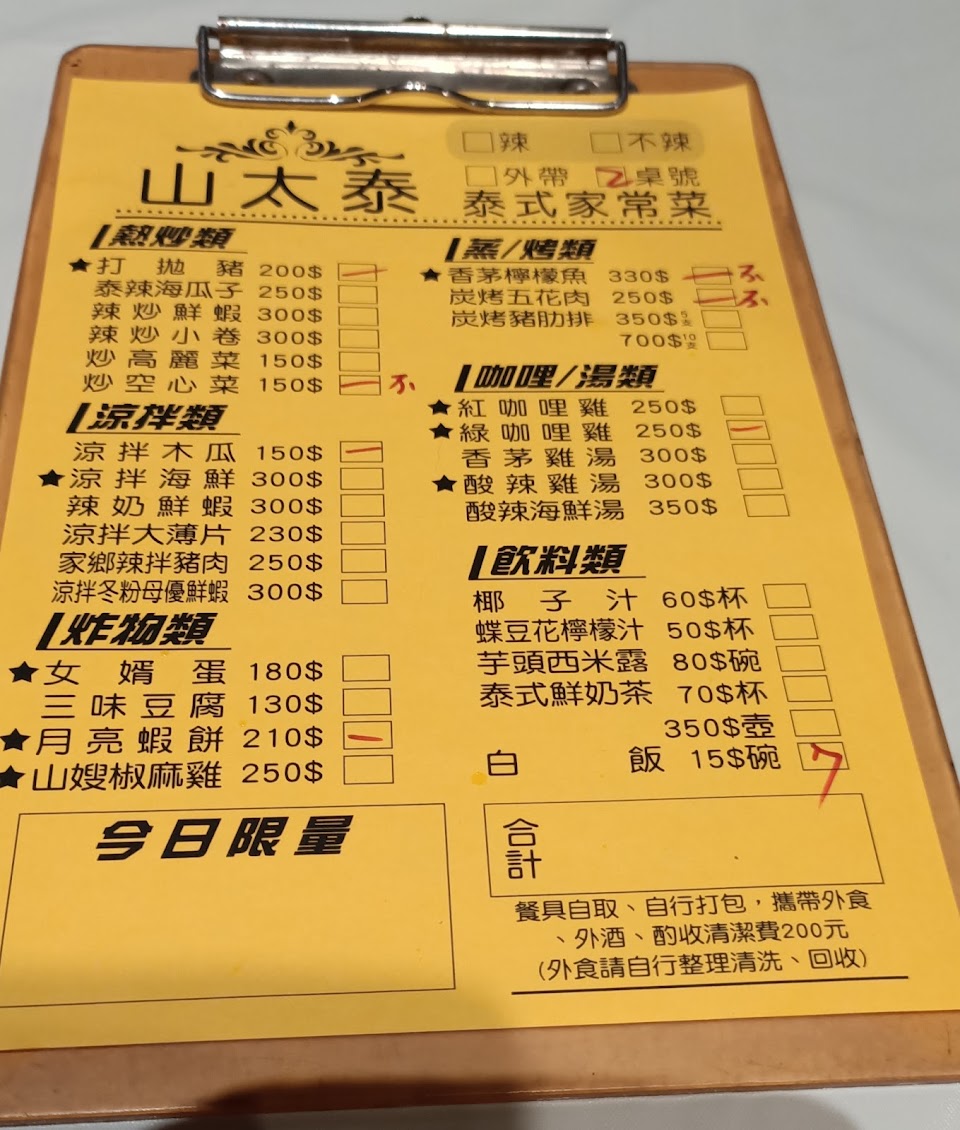 □辣 □不辣
□外帶 2桌號
山太泰 泰式家常菜
熱炒類
★打拋豬 200$ 一
泰辣海瓜子 250$
辣炒鮮蝦 300$
辣炒小卷 300$
炒高麗菜 150$
炒空心菜 150$ 一 不
涼拌類
涼拌木瓜 150$ 一
★涼拌海鮮 300$
辣奶鮮蝦 300$
涼拌大薄片 230$
家鄉辣拌豬肉 250$
涼拌冬粉母優鮮蝦 300$
炸物類
★女婿蛋 180$
三味豆腐 130$
★月亮蝦餅 210$ 一
★山嫂椒麻雞 250$
今日限量
蒸/烤類
★香茅檸檬魚 330$ 一 不
炭烤五花肉 250$ 一 不
炭烤豬肋排 350$5支
700$10支
咖哩/湯類
★紅咖哩雞 250$
★綠咖哩雞 250$ 一
香茅雞湯 300$
★酸辣雞湯 300$
酸辣海鮮湯 350$
飲料類
椰子汁 60$杯
蝶豆花檸檬汁 50$杯
芋頭西米露 80$碗
泰式鮮奶茶 70$杯
350$壺
白飯 15$碗 7
合計
餐具自取、自行打包，攜帶外食
、外酒、酌收清潔費200元
(外食請自行整理清洗、回收)